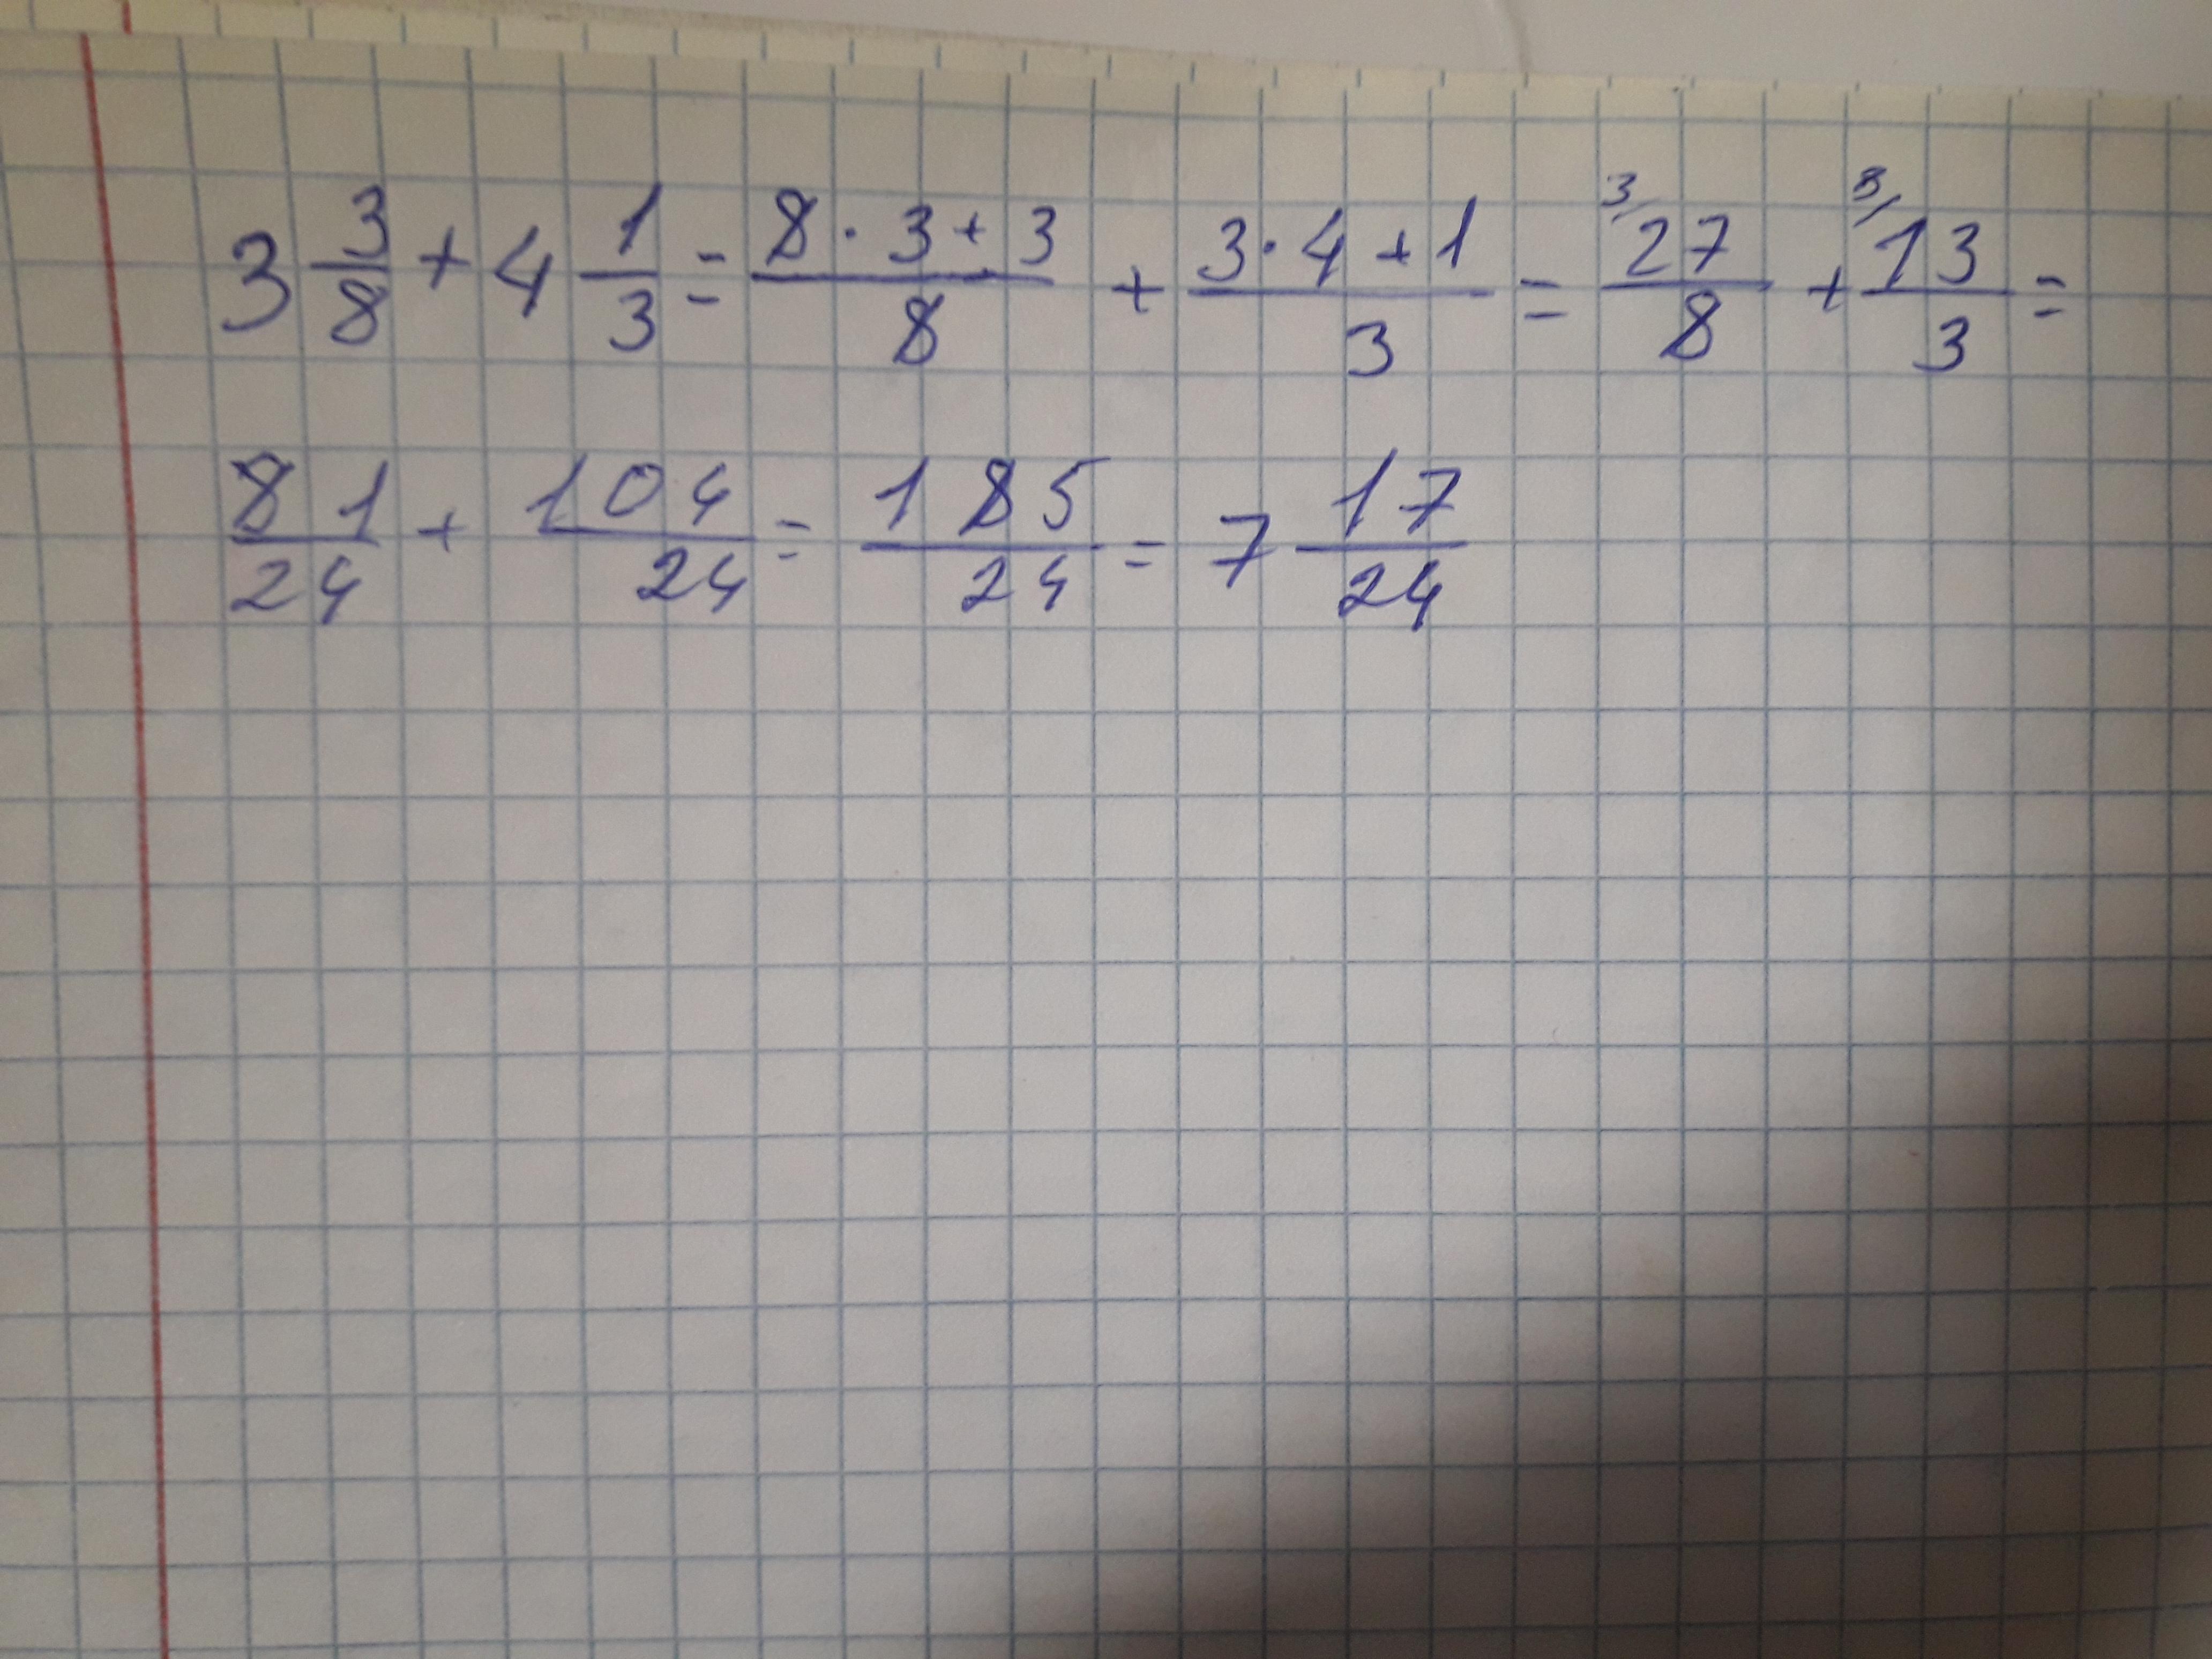 3 3/8 + 4 1/3 = (8 · 3 + 3)/8 + (3 · 4 + 1)/3 = ³⁄ 27/8 + ⁸⁄ 13/3 =
81/24 + 104/24 = 185/24 = 7 17/24